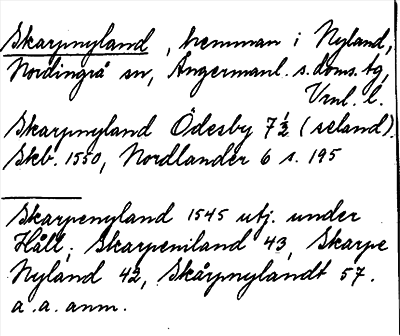 Skarpnyland, hemman i Nyland,
Nordingrå sn, Ångermanl. s. doms. tg,
Vrnl. l.
Skarpnyland Ödesby 7 1/2 (seland).
Skb. 1550, Nordlander 6 s. 195
Skarpenyland 1545 utj. under
Håll; Skarpeniland 43, Skarpe
Nyland 42, Skårpnylandt 57.
a. a. anm.